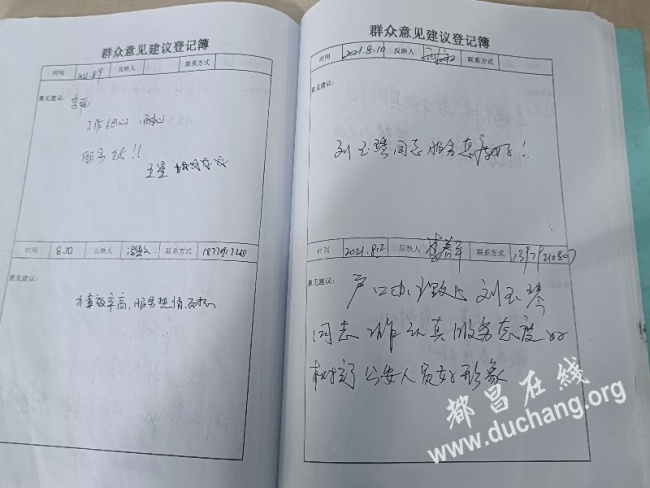 群众意见建议登记簿
时间 2021.8.9 反映人 联系方式
意见建议:
工作细心、耐心
服务态!!
五星 ☆☆☆☆
时间 8.10 反映人 联系方式
意见建议:
办事效率高,服务热情、耐心
群众意见建议登记簿
时间 2021.8.10 反映人 联系方式
意见建议:
刘玉琴同志服务态度好!
时间 2021.8.12 反映人 联系方式
意见建议:
户口办 刘玉琴
同志工作认真服务态度好
树立了公安人员好形象
都昌在线
www.duchang.org